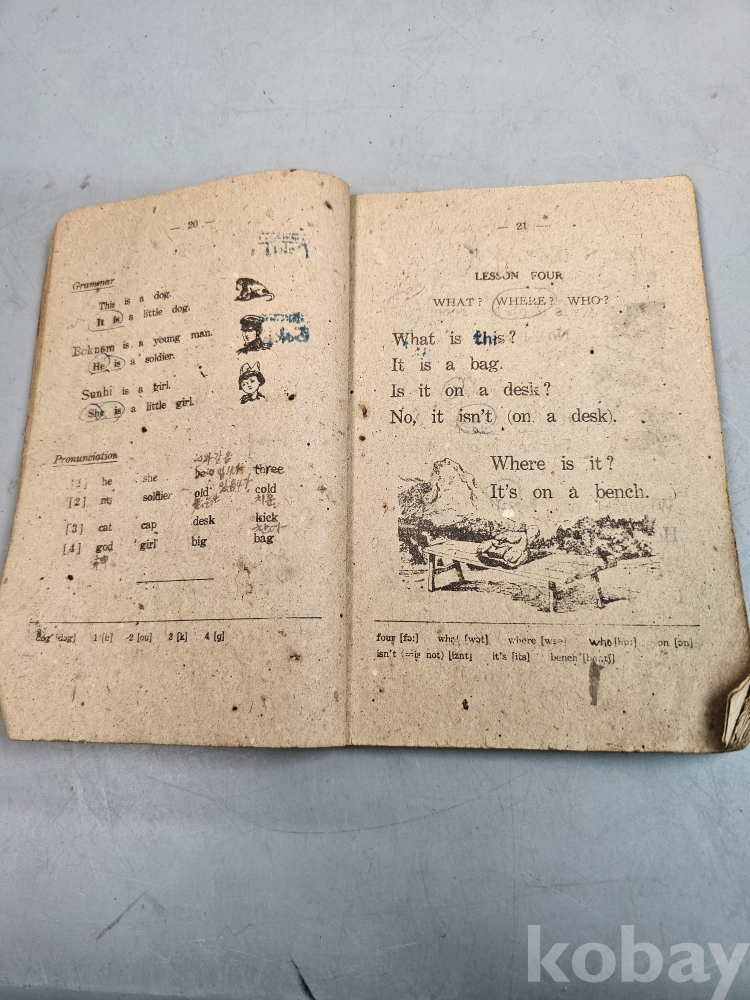 — 20 —
Grammar
This is a dog.
It is a little dog.
Boknam is a young man.
He is a soldier.
Sunhi is a girl.
She is a little girl.
Pronunciation
[1] he she be three
[2] soldier old cold
치운
[3] cat cap desk kick
[4] god girl big bag
神
dog [dɔg] 1 [i:] 2 [ou] 3 [k] 4 [g]
— 21 —
LESSON FOUR
WHAT? WHERE? WHO?
What is this?
It is a bag.
Is it on a desk?
No, it isn't (on a desk).
Where is it?
It's on a bench.
four [fɔ:] what [wɔt] where who [hu:] on [ɔn]
isn't (=is not) [iznt] it's [its] bench
kobay